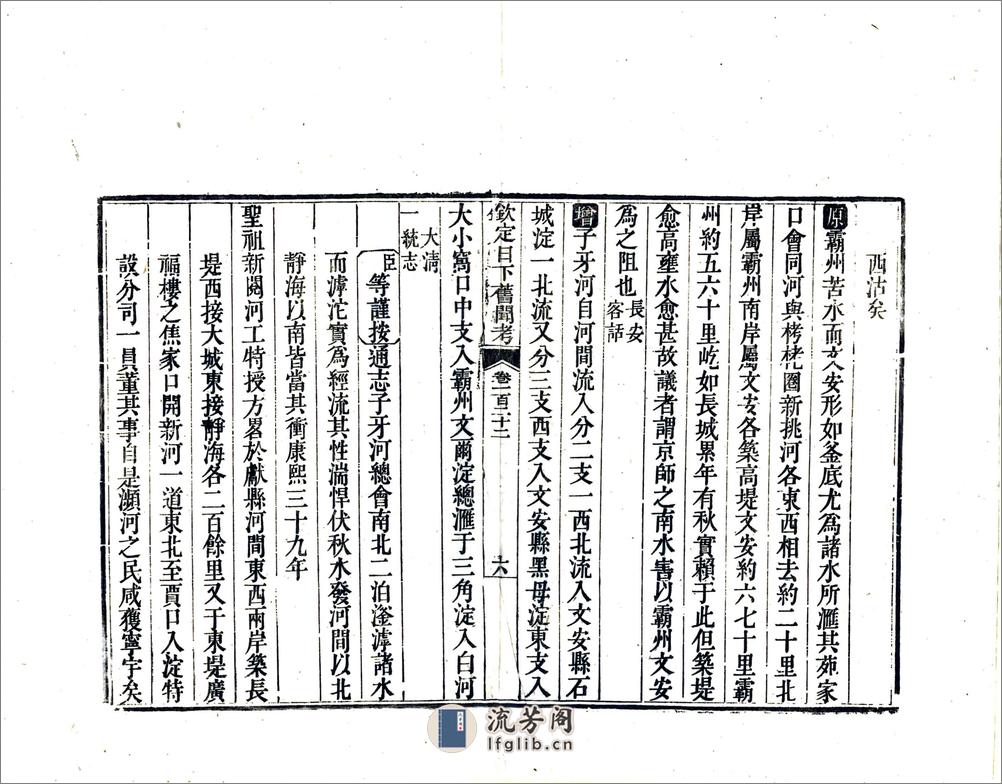 西沽矣
原霸州苦水而文安形如釜底尤為諸水所滙其苑家
口會同河與栲栳圈新挑河各東西相去約二十里北
岸屬霸州南岸屬文安各築高堤文安約六七十里霸
州約五六十里屹如長城累年有秋實賴于此但築堤
愈高壅水愈甚故議者謂京師之南水害以霸州文安
為之阻也長安客話
增子牙河自河間流入分二支一西北流入文安縣石
城淀一北流又分三支西支入文安縣黑母淀東支入
欽定日下舊聞考 卷一百二十二 六
大小窩口中支入霸州文爾淀總滙于三角淀入白河
大清一統志
臣等謹按通志子牙河總會南北二泊滏滹諸水
而滹沱實為經流其性湍悍伏秋水發河間以北
靜海以南皆當其衝康熙三十九年
聖祖新閱河工特授方畧於獻縣河間東西兩岸築長
堤西接大城東接靜海各二百餘里又于東堤廣
福樓之焦家口開新河一道東北至賈口入淀特
設分司一員董其事自是瀕河之民咸獲寧宇矣
流芳阁
lfglib.cn